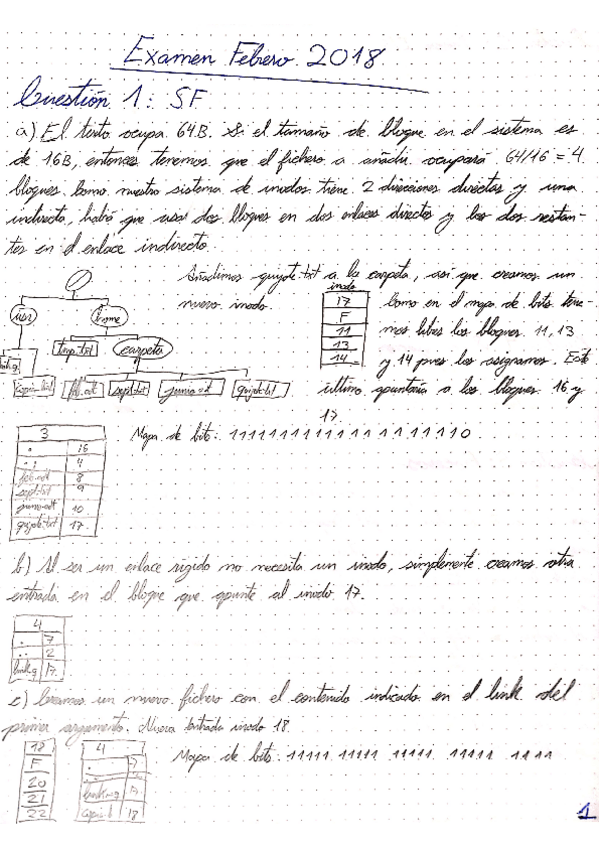 Examen Febrero 2018
Cuestión 1: SF
a) El texto ocupa 64B. Si el tamaño de bloque en el sistema es
de 16B, entonces tenemos que el fichero a añadir ocupará 64/16 = 4
bloques. Como nuestro sistema de inodos tiene 2 direcciones directas y una
indirecta, habrá que usar dos bloques en dos enlaces directos y los dos restan-
tes en el enlace indirecto.
Añadimos quijote.txt a la carpeta, así que creamos un
nuevo inodo.
inodo
17
F
11
13
14
Como en el mapa de bits tene-
mos libres los bloques 11, 13
y 14 pues los asignamos. Este
último apuntaría a los bloques 16 y
17.
/
usr
home
tmp.txt
carpeta
copia.txt
feb.odt
sept.txt
junio.odt
quijote.txt
Mapa de bits: 1111111111111111110
3
. 16
.. 4
feb.odt 8
sept.txt 9
junio.odt 10
quijote.txt 17
b) Al ser un enlace rígido no necesita un inodo, simplemente creamos otra
entrada en el bloque que apunte al inodo 17.
4
. 7
.. 2
link.q 17
c) Creamos un nuevo fichero con el contenido indicado en el link del
primer argumento. Nueva entrada inodo 18.
Mapa de bits: 11111 11111 11111 11111 1111
18
F
20
21
22
4
. 7
17
copia.t 18
1